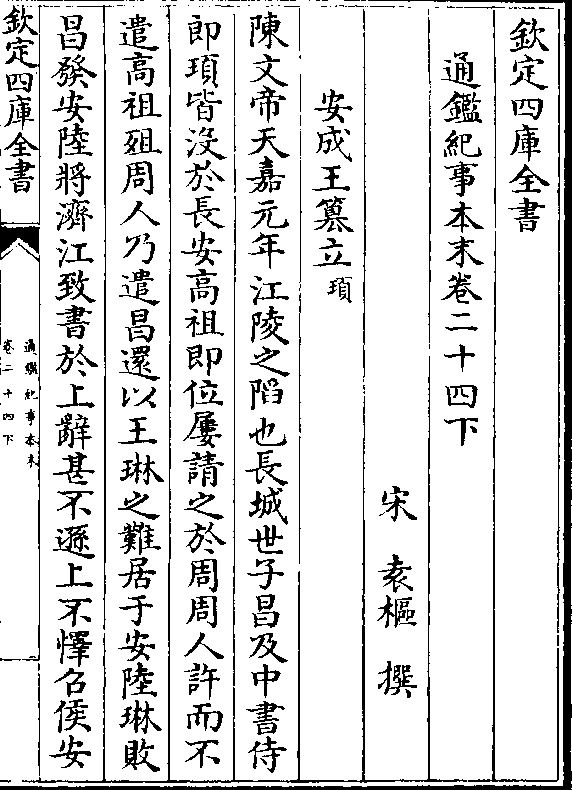 欽定四庫全書
通鑑紀事本末卷二十四下
宋 袁樞 撰
安成王篡立頊
陳文帝天嘉元年江陵之䧟也長城世子昌及中書侍
郎頊皆沒於長安高祖即位屢請之於周周人許而不
遣高祖殂周人乃遣昌還以王琳之難居于安陸琳敗
昌發安陸將濟江致書於上辭甚不遜上不懌召侯安
欽定四庫全書
通鑑紀事本末
卷二十四下